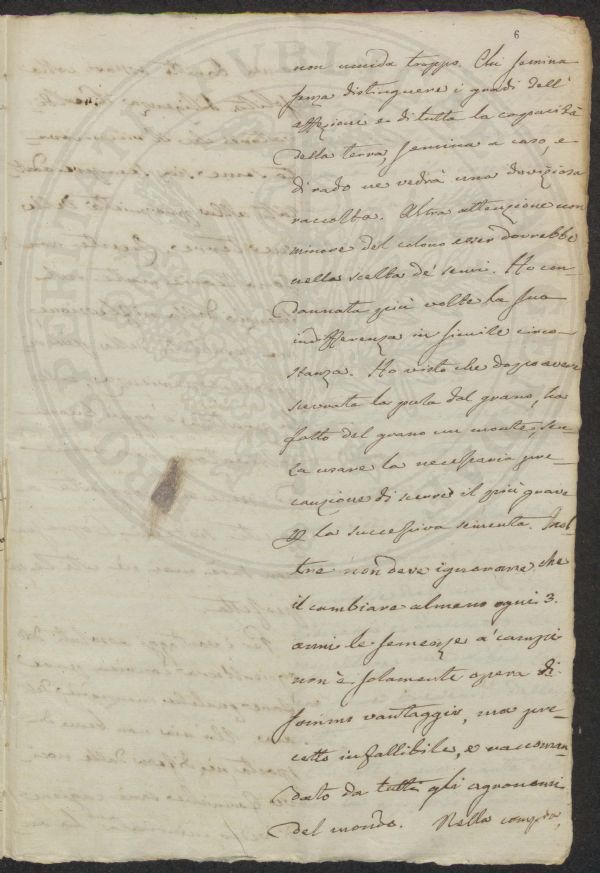 6
non umida troppo. Chi semina
senza distinguere i gradi dell'
affezione e di tutta la capacità
della terra, semina a caso, e
di rado ne vedrà una doviziosa
raccolta. Altra attenzione non
minore del colono esser dovrebbe
nella scelta de' semi. Ho con-
dannata più volte la sua
indifferenza in simile circo-
stanza. Ho visto che dopo aver
scevrata la pula dal grano, ha
fatto del grano un monte, sen-
za usare la necessaria pre-
cauzione di scerre il più grave
p la successiva sementa. Inol
tre non deve ignorare, che
il cambiare almeno ogni 3.
anni le semenze a' campi
non è solamente opera di
sommo vantaggio, ma pre-
cetto infallibile, e raccoman
dato da tutti gli agronomi
del mondo. Nella compra,